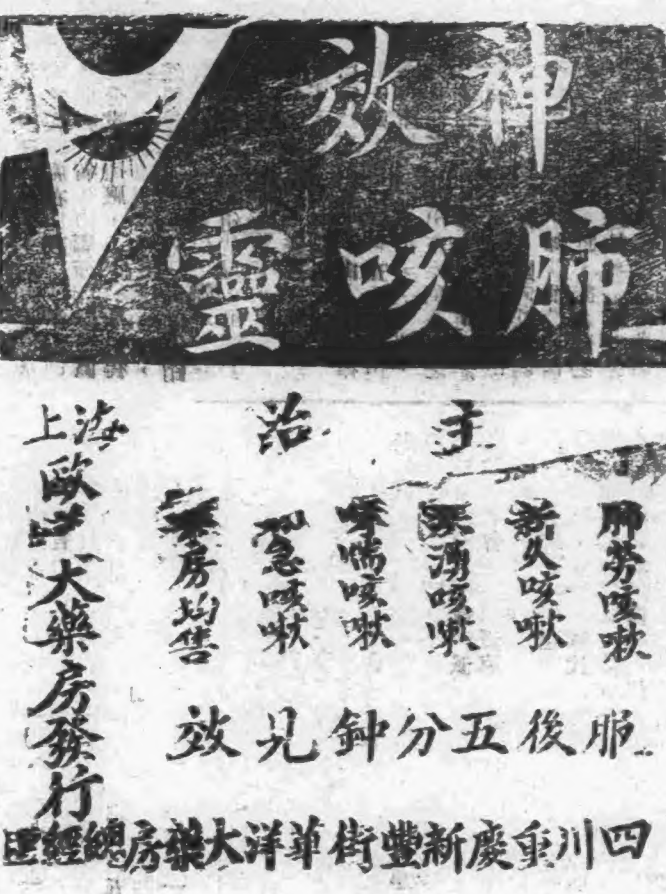 神效
肺咳靈
主治
肺勞咳嗽
新久咳嗽
痰湧咳嗽
哮喘咳嗽
急咳嗽
藥房均售
服後五分鈡見效
上海
歐大藥房發行
四川重慶新豐街華洋大藥房總經